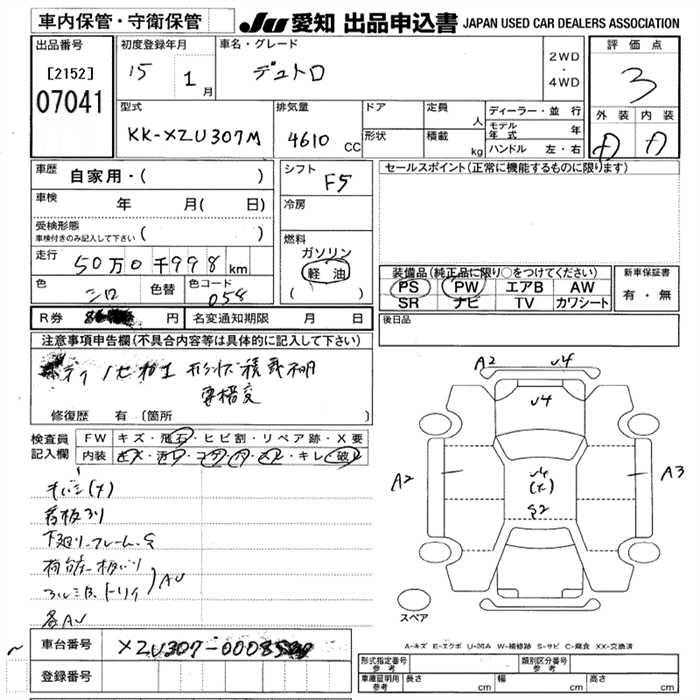 車内保管・守衛保管
JU 愛知 出品申込書 JAPAN USED CAR DEALERS ASSOCIATION
出品番号
[2152]
07041
初度登録年月
15 1 月
車名・グレード
デュトロ
2WD
・
4WD
評価点
3
外装 内装
型式
KK-XZU307M
排気量
4610 CC
ドア
形状
定員 人
積載 kg
ディーラー・並行
モデル年式 年
ハンドル 左・右
車歴
自家用・( )
車検 年 月( 日)
受検形態
車検付きのみ記入して下さい ( )
走行
50万0千998 km
色
シロ
色替
色コード
058
シフト
F5
冷房
燃料
ガソリン
軽油
( )
セールスポイント(正常に機能するものに限ります)
装備品(純正品に限り○をつけてください)
PS PW エアB AW
SR ナビ TV カワシート
新車保証書
有・無
R券 円 名変通知期限 月 日
後日品
注意事項申告欄(不具合内容等は具体的に記入して下さい)
修復歴 有 (箇所 )
検査員
記入欄
FW キズ・飛石・ヒビ割・リペア跡・X要
内装 キズ・汚レ・コゲ・穴・スレ・キレ・破レ
キズ(大)
看板ヨリ
各AU
A2 U4
U4
A2
A3
U4
(大)
S2
スペア
A-キズ E-エクボ U-凹み W-補修跡 S-サビ C-腐食 XX-交換済
車台番号
登録番号
形式指定番号
参考
類別区分番号
参考
車庫証明用
参考
長さ cm 幅 cm 高さ cm